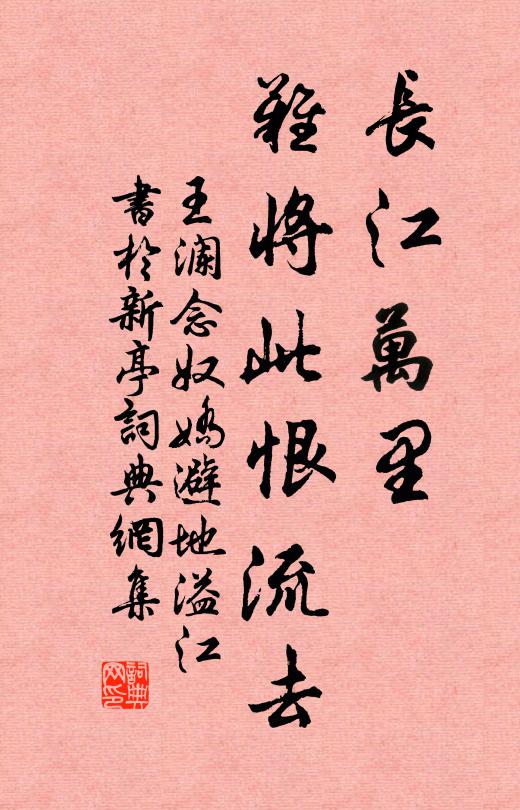 長江萬里
難將此恨流去
王瀾念奴嬌避地溢江
書於新亭詞典網集
詞典網印